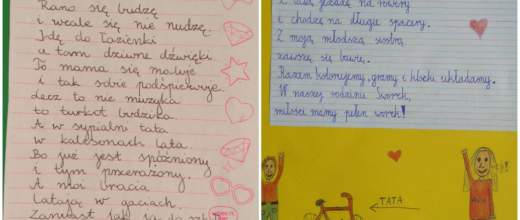 Rano się budzę
i wcale się nie nudzę.
Idę do łazienki
a tam dziwne dźwięki.
To mama się maluje
i tak sobie podśpiewuje
lecz to nie muzyka
to turkot budzika.
A w sypialni tata
w kalesonach lata.
Bo już jest spóźniony
i tym przerażony.
A moi bracia
latają w gaciach.
Zamiast
i chodzę na długie spacery.
Z moją młodszą siostrą
zawsze się bawię.
Razem kolorujemy, gramy i klocki układamy.
W naszej rodzinie
miłości mamy pełen worek!
TATA